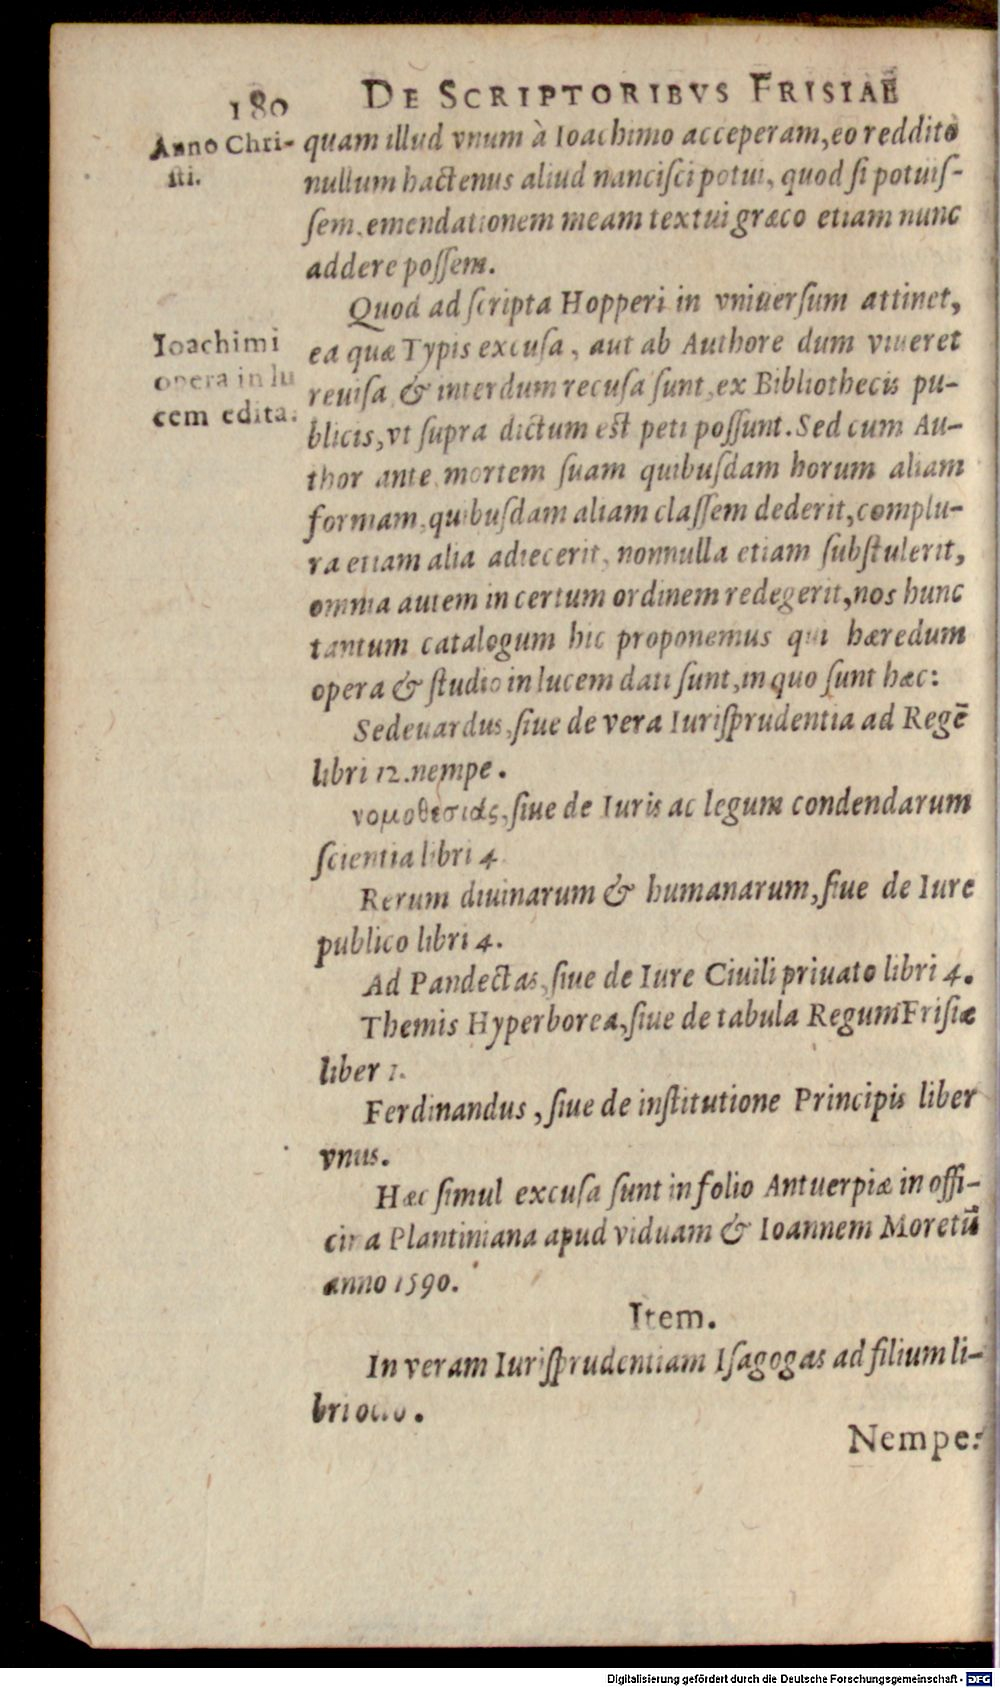 180 DE SCRIPTORIBVS FRISIAE
Anno Chri-
sti.
quam illud vnum à Ioachimo acceperam, eo reddito
nullum hactenus aliud nancisci potui, quod si potuis-
sem, emendationem meam textui græco etiam nunc
addere possem.
Quod ad scripta Hopperi in vniuersum attinet,
Ioachimi
opera in lu
cem edita.
ea quæ Typis excusa, aut ab Authore dum viueret
reuisa & interdum recusa sunt, ex Bibliothecis pu-
blicis, vt supra dictum est peti possunt. Sed cum Au-
thor ante mortem suam quibusdam horum aliam
formam, quibusdam aliam classem dederit, complu-
ra etiam alia adiecerit, nonnulla etiam substulerit,
omnia autem in certum ordinem redegerit, nos hunc
tantum catalogum hic proponemus qui hæredum
opera & studio in lucem dati sunt, in quo sunt hæc:
Sedeuardus, siue de vera Iurisprudentia ad Regē
libri 12. nempe.
νομοθεσίας, siue de Iuris ac legum condendarum
scientia libri 4.
Rerum diuinarum & humanarum, siue de Iure
publico libri 4.
Ad Pandectas, siue de Iure Ciuili priuato libri 4.
Themis Hyperborea, siue de tabula Regum Frisiæ
liber 1.
Ferdinandus, siue de institutione Principis liber
vnus.
Hæc simul excusa sunt in folio Antuerpiæ in offi-
cina Plantiniana apud viduam & Ioannem Moretū
anno 1590.
Item.
In veram Iurisprudentiam Isagogas ad filium li-
bri octo.
Nempe:
Digitalisierung gefördert durch die Deutsche Forschungsgemeinschaft - DFG